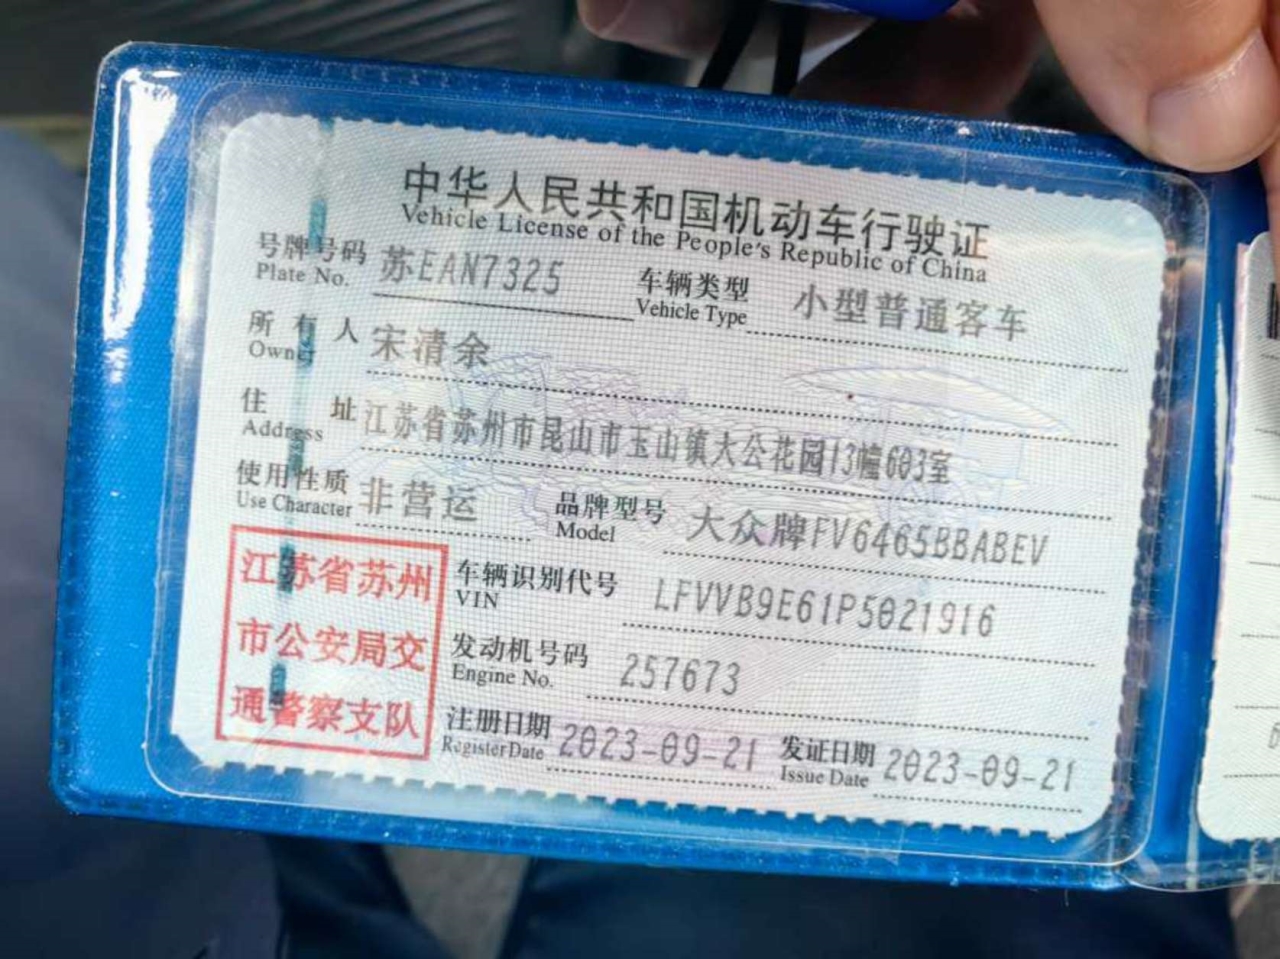 中华人民共和国机动车行驶证
Vehicle License of the People's Republic of China
号牌号码 苏EAN7325 车辆类型 小型普通客车
Plate No. Vehicle Type
所有人 宋清余
Owner
住址 江苏省苏州市昆山市玉山镇大公花园13幢603室
Address
使用性质 非营运 品牌型号 大众牌FV6465BBABEV
Use Character Model
江苏省苏州
市公安局交
通警察支队
车辆识别代号 LFVVB9E61P5021916
VIN
发动机号码 257673
Engine No.
注册日期 2023-09-21 发证日期 2023-09-21
Register Date Issue Date